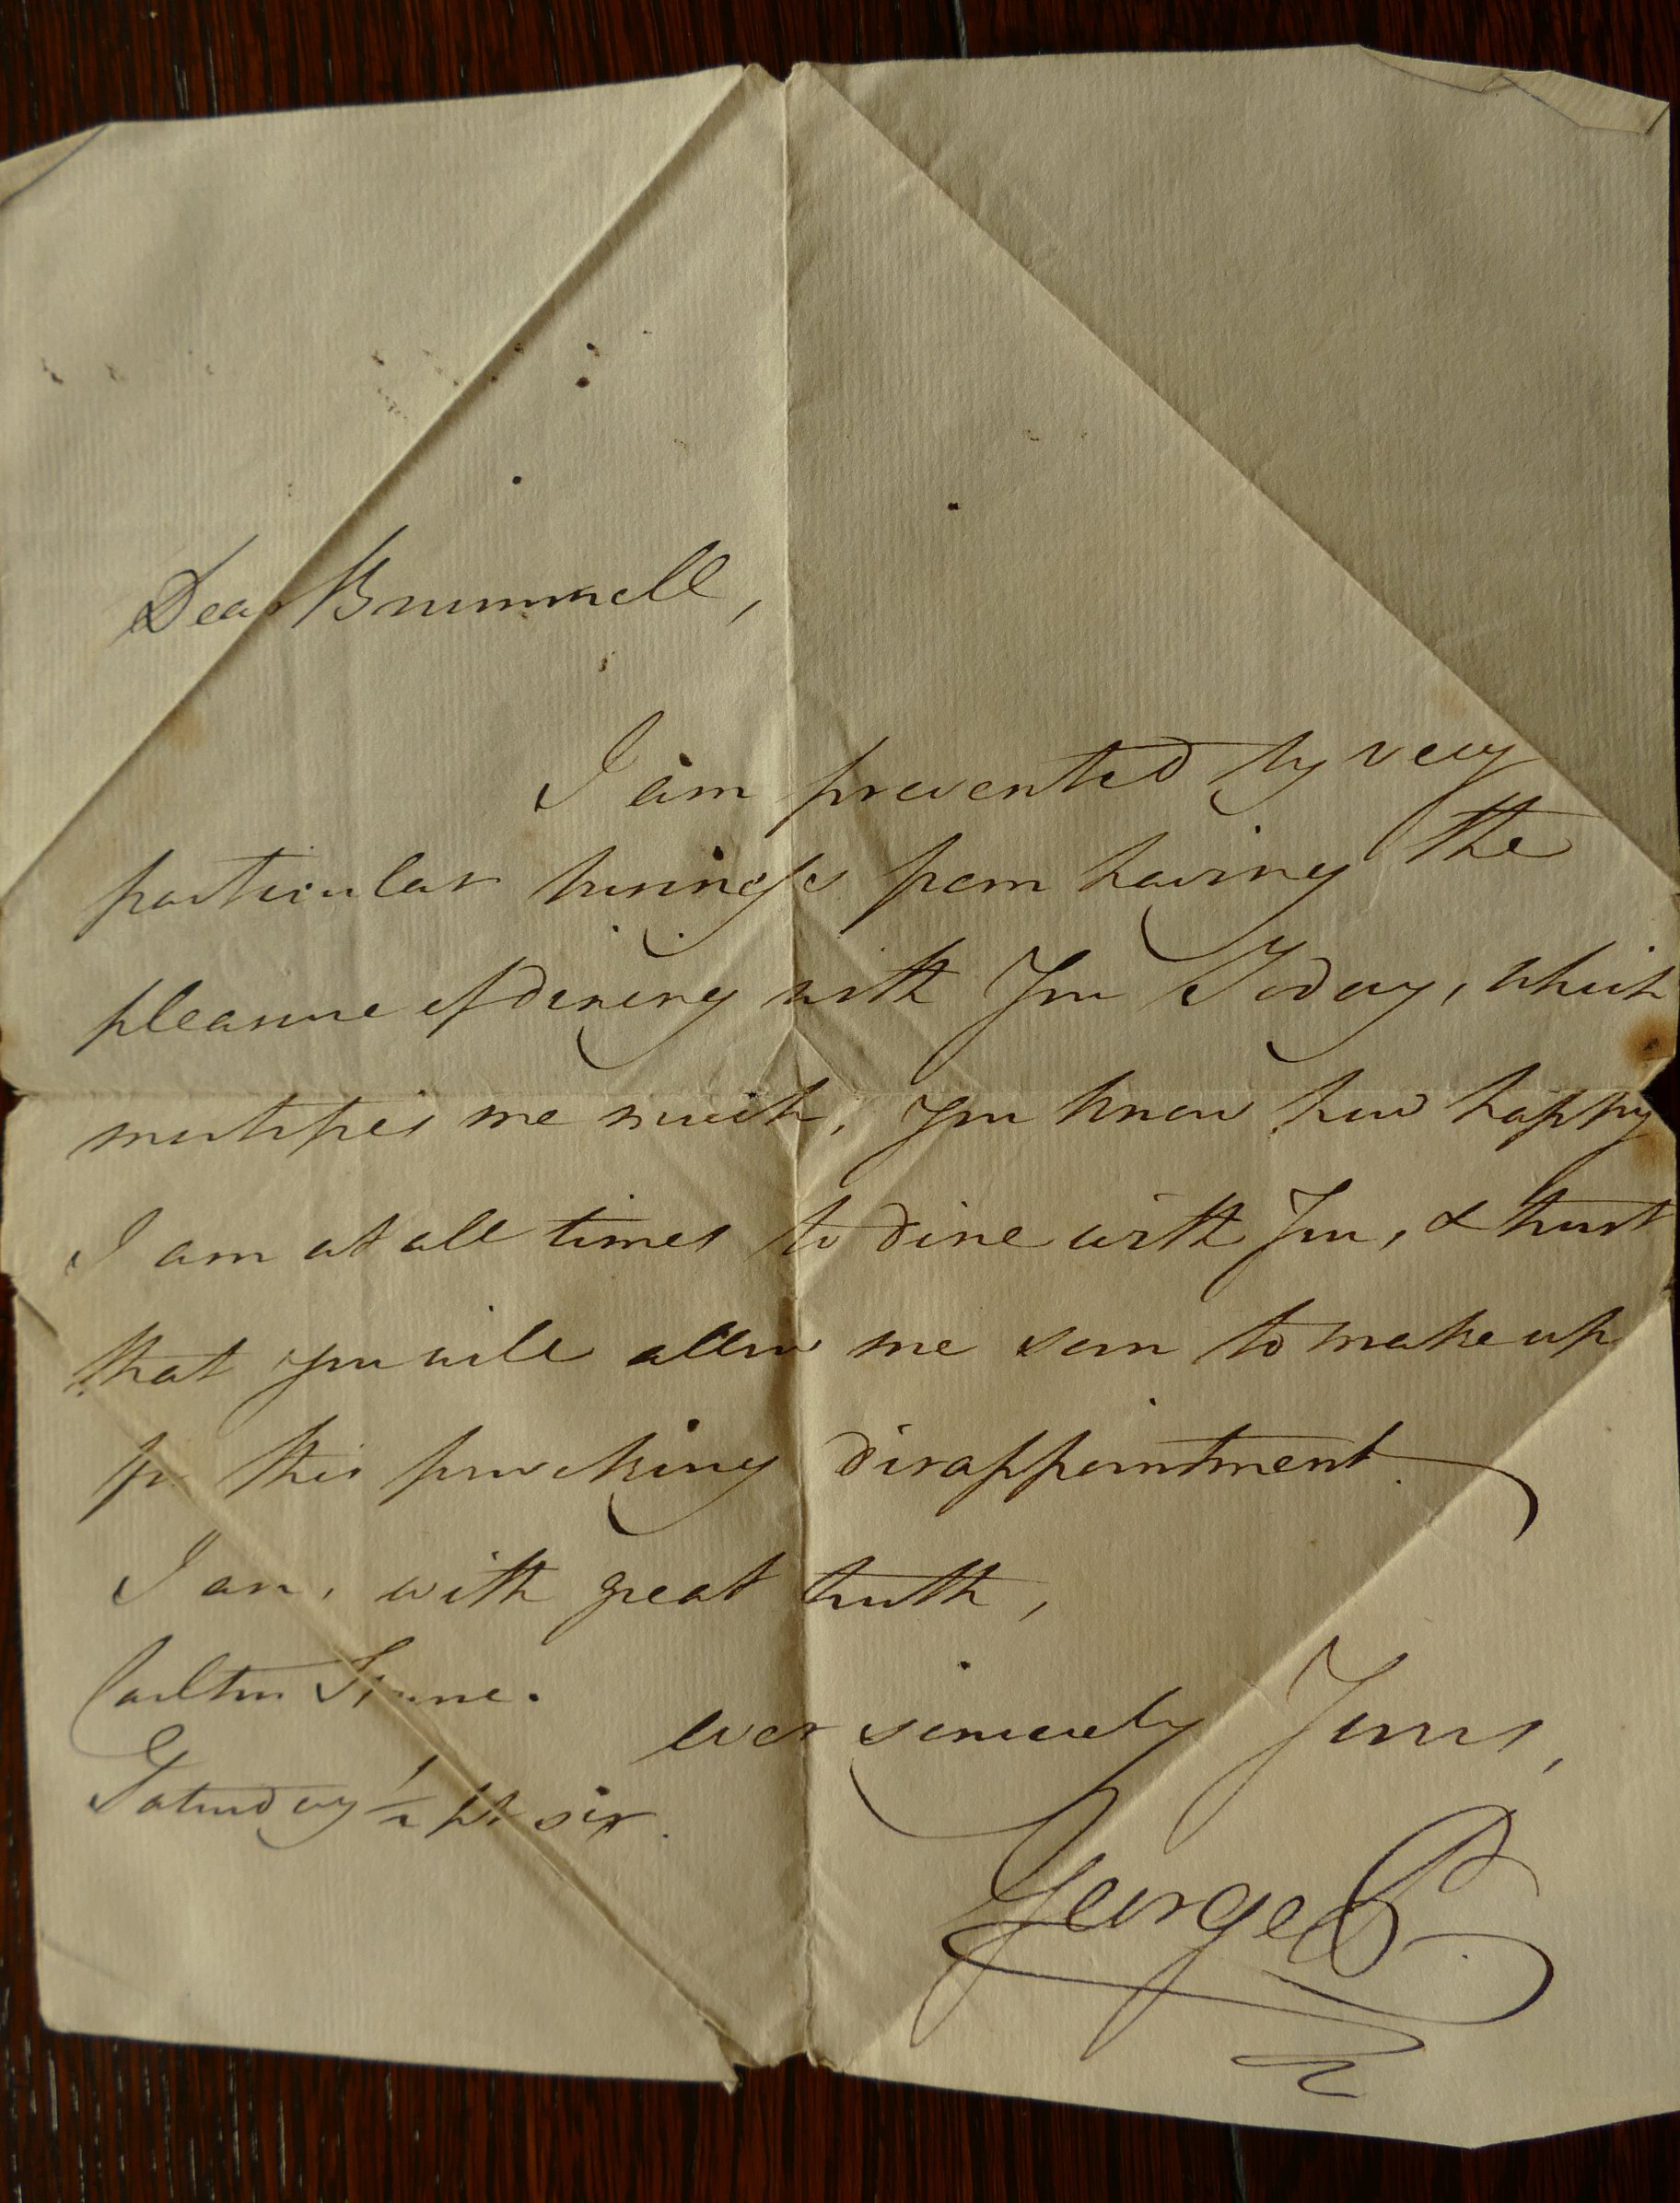 Dear Brummell,
I am prevented by very
particular business from having the
pleasure of dining with You Today, which
mortifies me much, you know how happy
I am at all times to dine with You, & trust
that you will allow me soon to make up
for this provoking disappointment.
I am, with great truth,
Carlton House.
ever sincerely Yours,
Saturday 1/2 pt six.
George P.